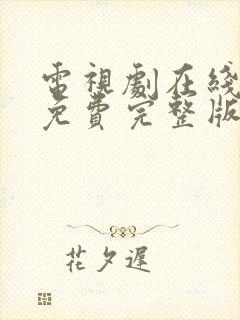 電視劇在綫
免費完整版
花夕遲